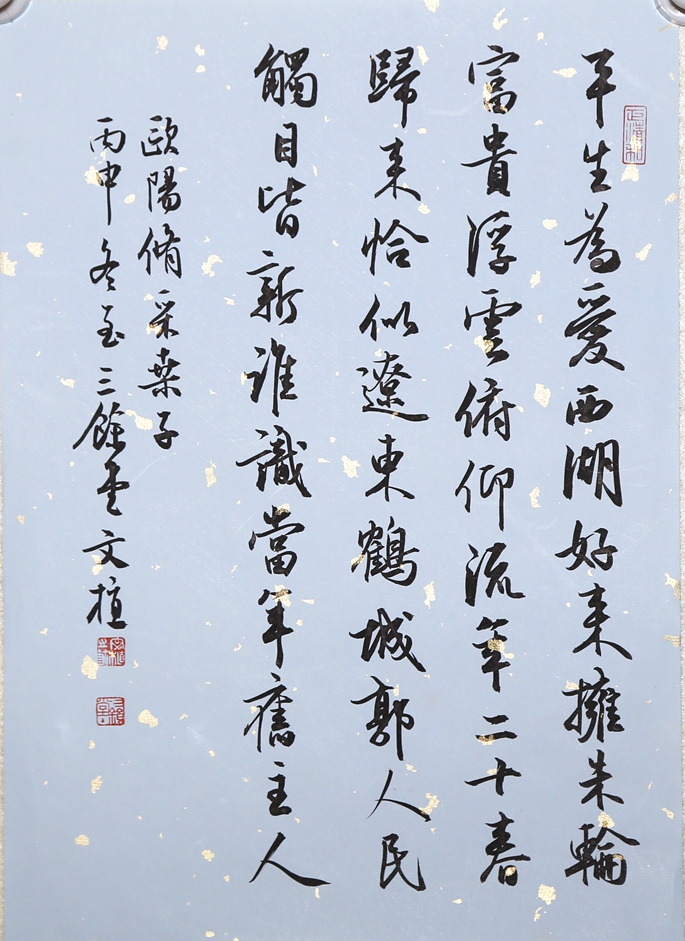 平生為愛西湖好来擁朱輪
富貴浮雲俯仰流年二十春
歸来恰似遼東鶴城郭人民
觸目皆新誰識當年舊主人
歐陽脩采桑子
丙申冬至三餘堂文植